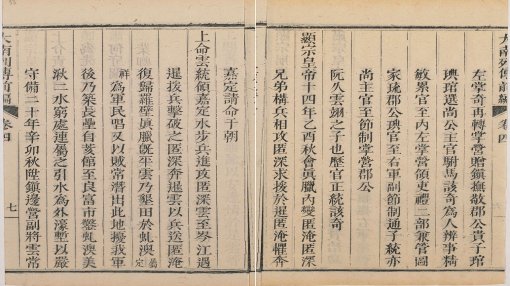 大南列傳前編 卷四
左掌奇再轉掌營贈鎭撫敬郡公貴子琯
璵琯選尚公主官駙馬該奇為人辨事精
敏累官至內左掌營領吏禮二部兼管圖
家珫郡公璵官至右軍副節制通子統亦
尚主官至節制掌營郡公
阮久雲翊之子也歷官正統該奇
顯宗皇帝十四年乙酉秋會眞臘內變匿淹匿深
兄弟構兵相攻匿深求援於暹匿淹懼奔
嘉定請命于朝
上命雲統領嘉定水步兵進攻匿深雲至岑江遇
暹援兵擊破之匿深奔暹雲以兵送匿淹
復歸羅壁眞臘旣平雲乃墾田於虬澳屬定
祥為軍民唱又以賊常潛出此地擾我軍
後乃築長壘自葵館至良富市鑿虬澳美
湫二水窮處連屬之引水為外濠塹以嚴
守備二十年辛卯秋陞鎭邊營副將雲常
大南列傳前編 卷四 七